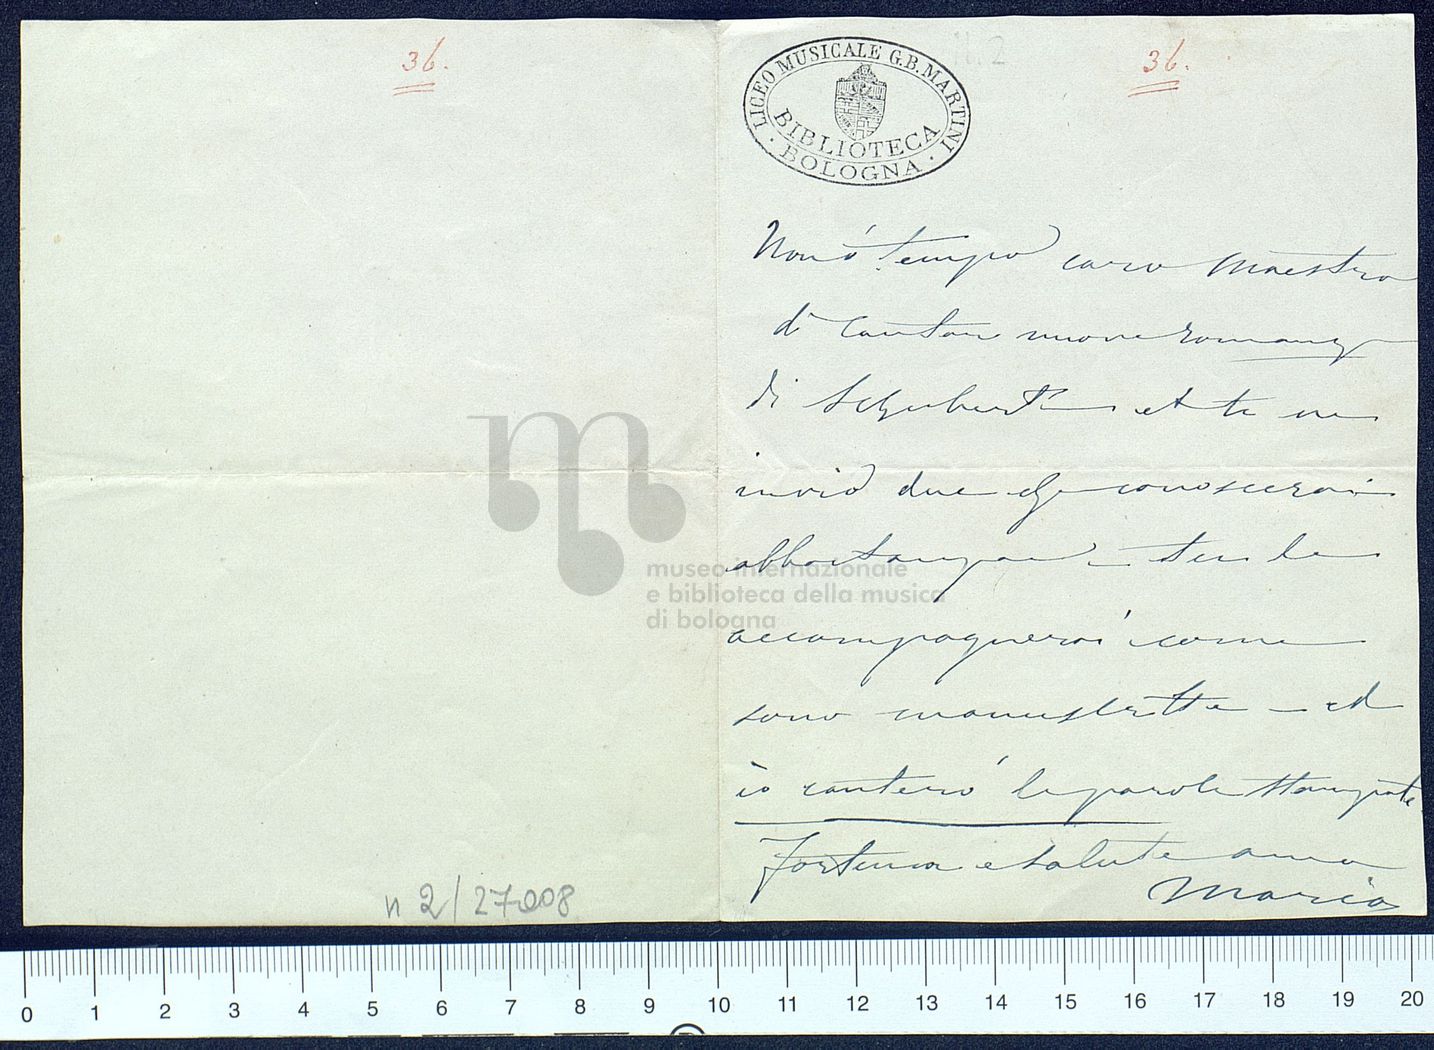 36.
n 2/27008
N. 2
36.
LICEO MUSICALE G.B. MARTINI
BIBLIOTECA
BOLOGNA
Non é tempo caro Maestro
di Cantar nuove romanze
di Schubert et te ne
invio due che conoscerai
abbastanza – tu le
accompagnerai come
sono manuscritte – ed
io canteró le parole stampate
Fortuna e salute
Mario
museo internazionale
e biblioteca della musica
di bologna
0 1 2 3 4 5 6 7 8 9 10 11 12 13 14 15 16 17 18 19 20